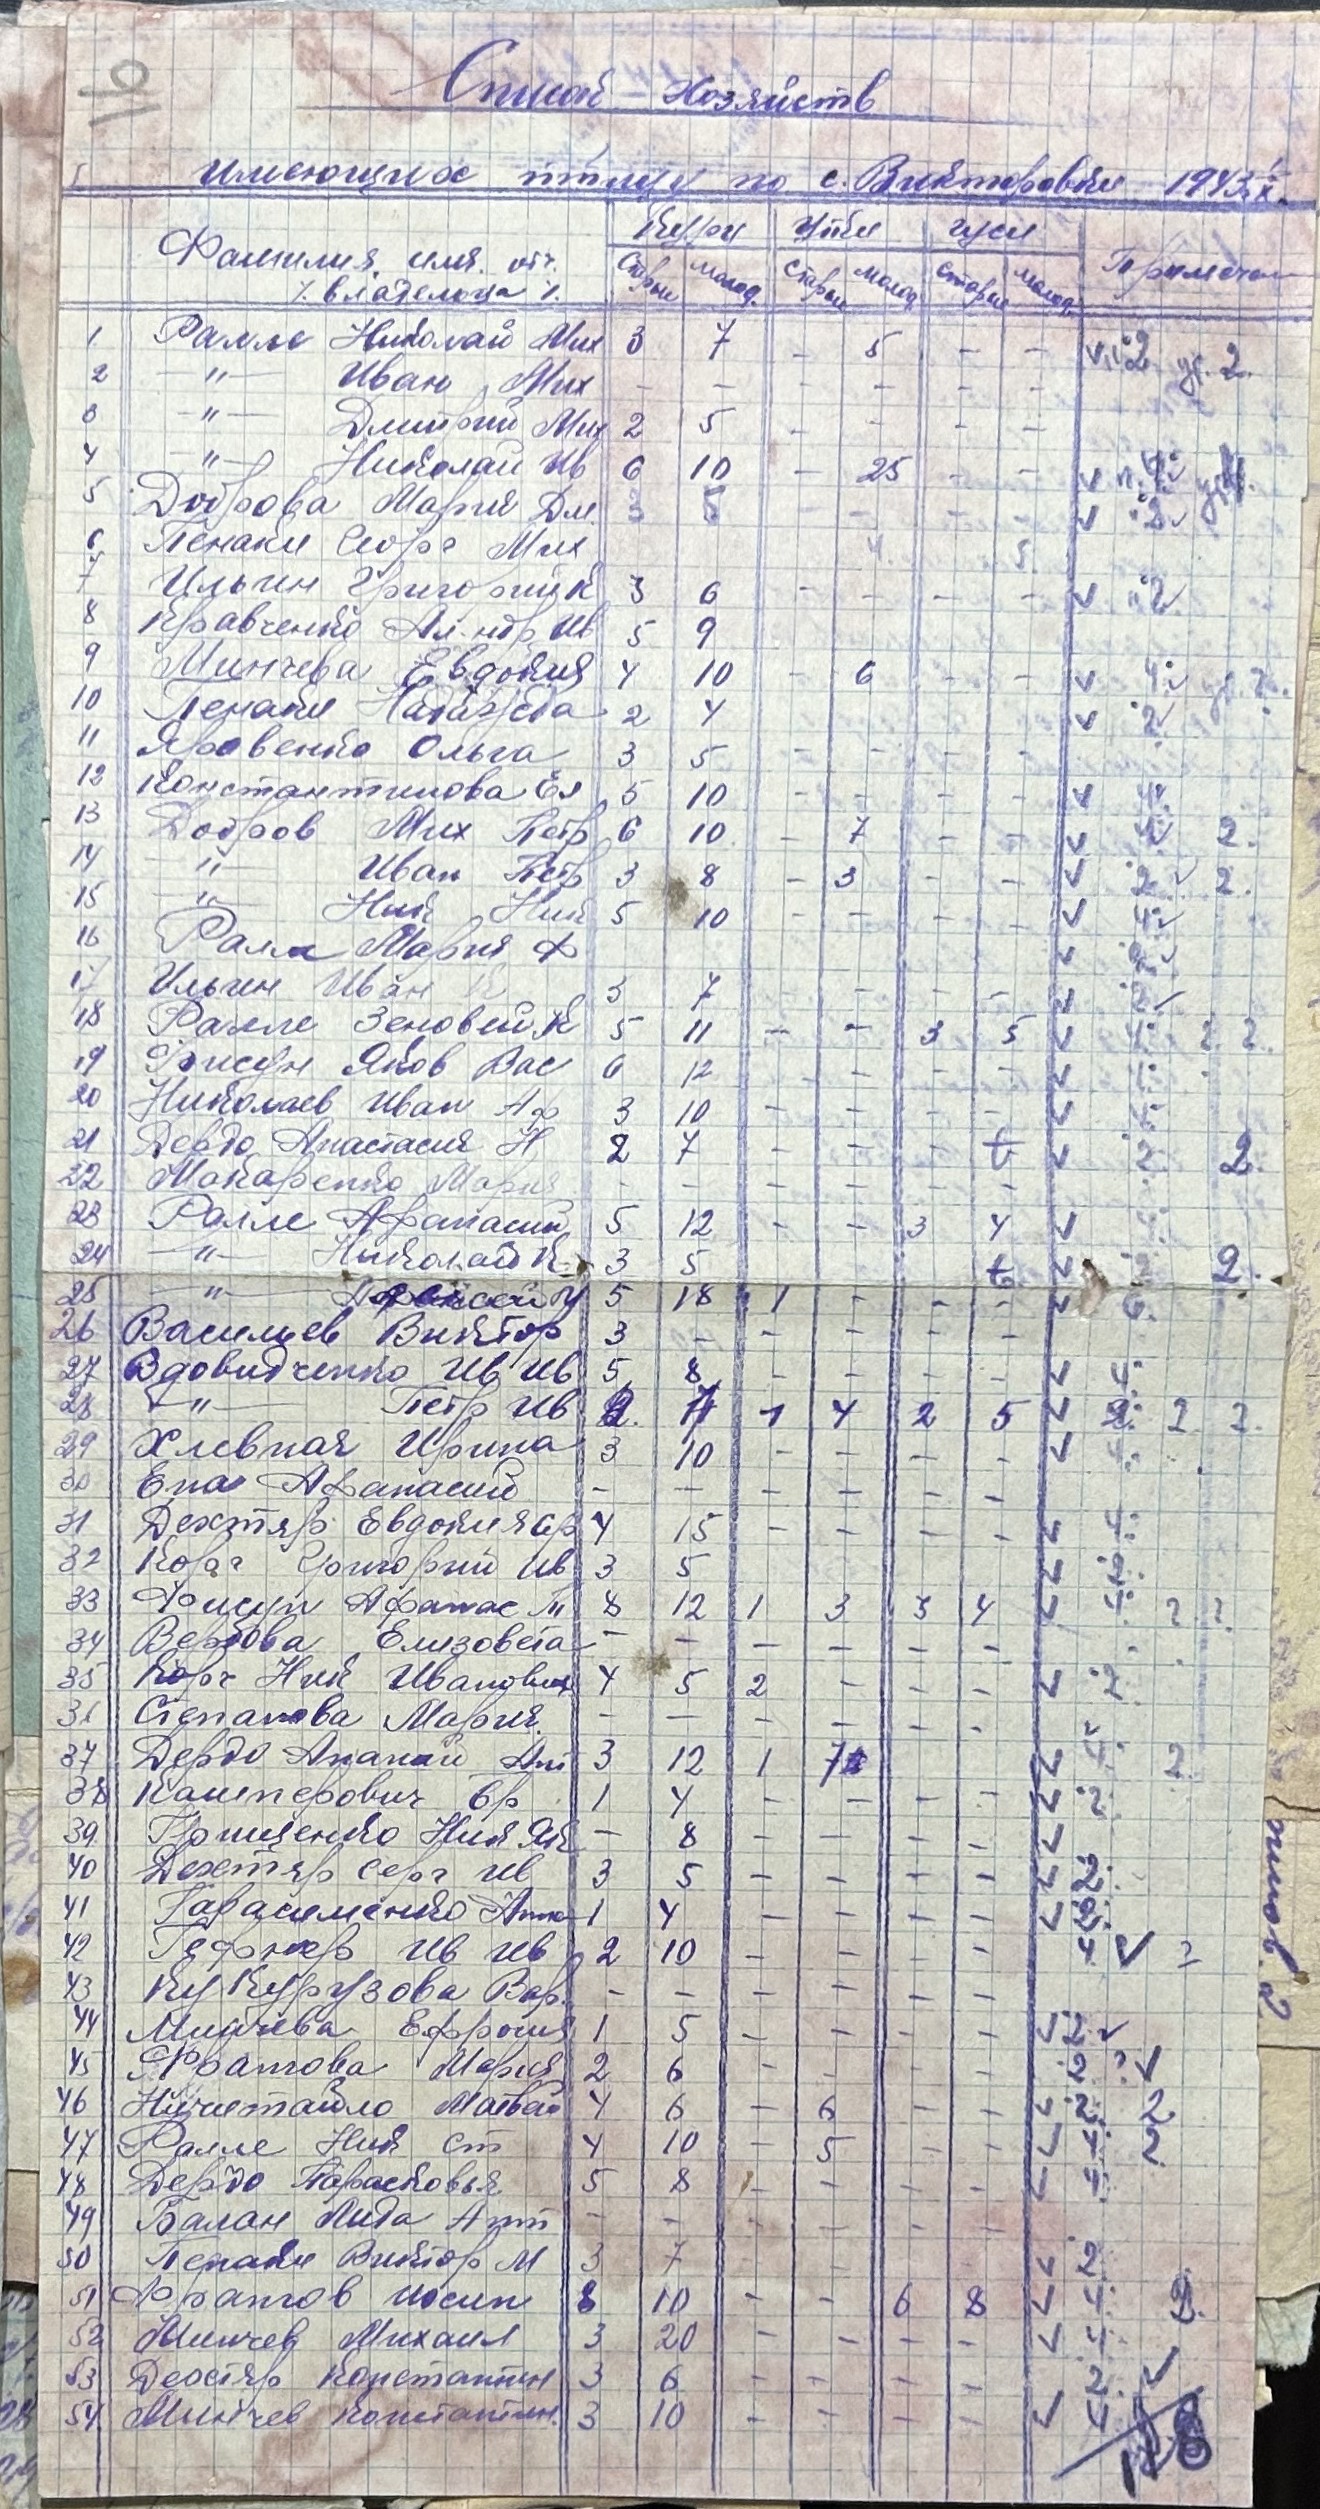 91
Список Хозяйств
имеющих птицу по с. Викторовки 1943 г.
Фамилия, имя, отч. владельца Куры Утки Гуси Примечан
Старые молод. Старые молод. Старые молод.
1 Ралле Николай Мих 3 7 - 5 - - v 2 ут. 2.
2 -"- Иван Мих - - - - - -
3 -"- Дмитрий Мих 2 5 - - - -
4 -"- Николай Ив 6 10 - 25 - - v 4
5 Доброва Мария Дм. 3 5 - - - - v 2 v
6 Пенаки Георг Мих
7 Ильин Григорий К 3 6 - - - - v 2
8 Кравченко Ал-ндр Ив 5 9
9 Минчева Евдокия 4 10 - 6 - - v 4 v ут. 2.
10 Пенаки 2 4 v 2
11 Яровенко Ольга 3 5 - - - -
12 Константинова Ел 5 10 - - - - v 4
13 Добров Мих Петр 6 10 - 7 - - v 4 2.
14 -"- Иван Петр 3 8 - 3 - - v 2 v 2.
15 -"- Ник Ник 5 10 - - - - v 4 v
16 Ралли Мария Ф v 2 v
17 Ильин Иван К 3 7 - - - v 2 v
18 Ралле Зеновей К 5 11 - - 3 5 v 4 2. 2.
19 Фисун Яков Вас 6 12 - - - - v 4
20 Николаев Иван Аф 3 10 - - - - v 4
21 Дердо Анастасия Н 2 7 - - - 6 v 2 2.
22 Макаренко Мария - - - - - -
23 Ралле Афанасий 5 12 - - 3 4 v 4
24 -"- Николай К 3 5 6 v 2 2.
25 -"- 5 18 1 - - - v 6.
26 Васильев Виктор 3 - - - - -
27 Вдовидченко Ив Ив 5 8 - - - - v 4
28 -"- Петр Ив 2. 4 1 4 2 5 v 2 2 2.
29 Хлевная Ирина 3 10 - - - - v 4
30 Ена Афанасий - - - - - -
31 Дехтяр Евдокия Гр 4 15 - - - - v 4
32 Корч Григорий Ив 3 5 v 2
33 Фисун Афанас М 8 12 1 3 3 4 v 4 2 2
34 Вербова Елизовета - - - - - -
35 Корч Ник Иванович 4 5 2 - - - v 2
36 Степанова Мария. - - - - - -
37 Дердо Ананий Ан 3 12 1 7 v 4 2
38 Камперович Ор 1 4 - - - - v 2
39 Грищенко Ник Як - 8 - - - - v
40 Дехтяр Серг Ив 3 5 - - - - v 2
41 Гарасименко Анна 1 4 - - - - v 2
42 Гефнер Ив Ив 2 10 - - - - 4 v 2
43 Кукурузова Вар. - - - - - -
44 Минчева Ефросия 1 5 - - - - v 2 v
45 Фратова Мария 2 6 - - - - 2 ? v
46 Ничитайло Матвей 4 6 - 6 - - v 2 2
47 Ралле Ник Ст 4 10 - 5 - - v 4 2
48 Дердо Парасковья 5 8 - - - - v 4
49 Балан Лида Ант - - - - - -
50 Пенаки Виктор М 3 7 - - v 2
51 Фратов Иосип 8 10 - - 6 8 v 4 2.
52 Минчев Михаил 3 20 - - - - v 4
53 Дехтяр Константин 3 6 - - - - 2. v
54 Минчев Константин. 3 10 - - - - v 4